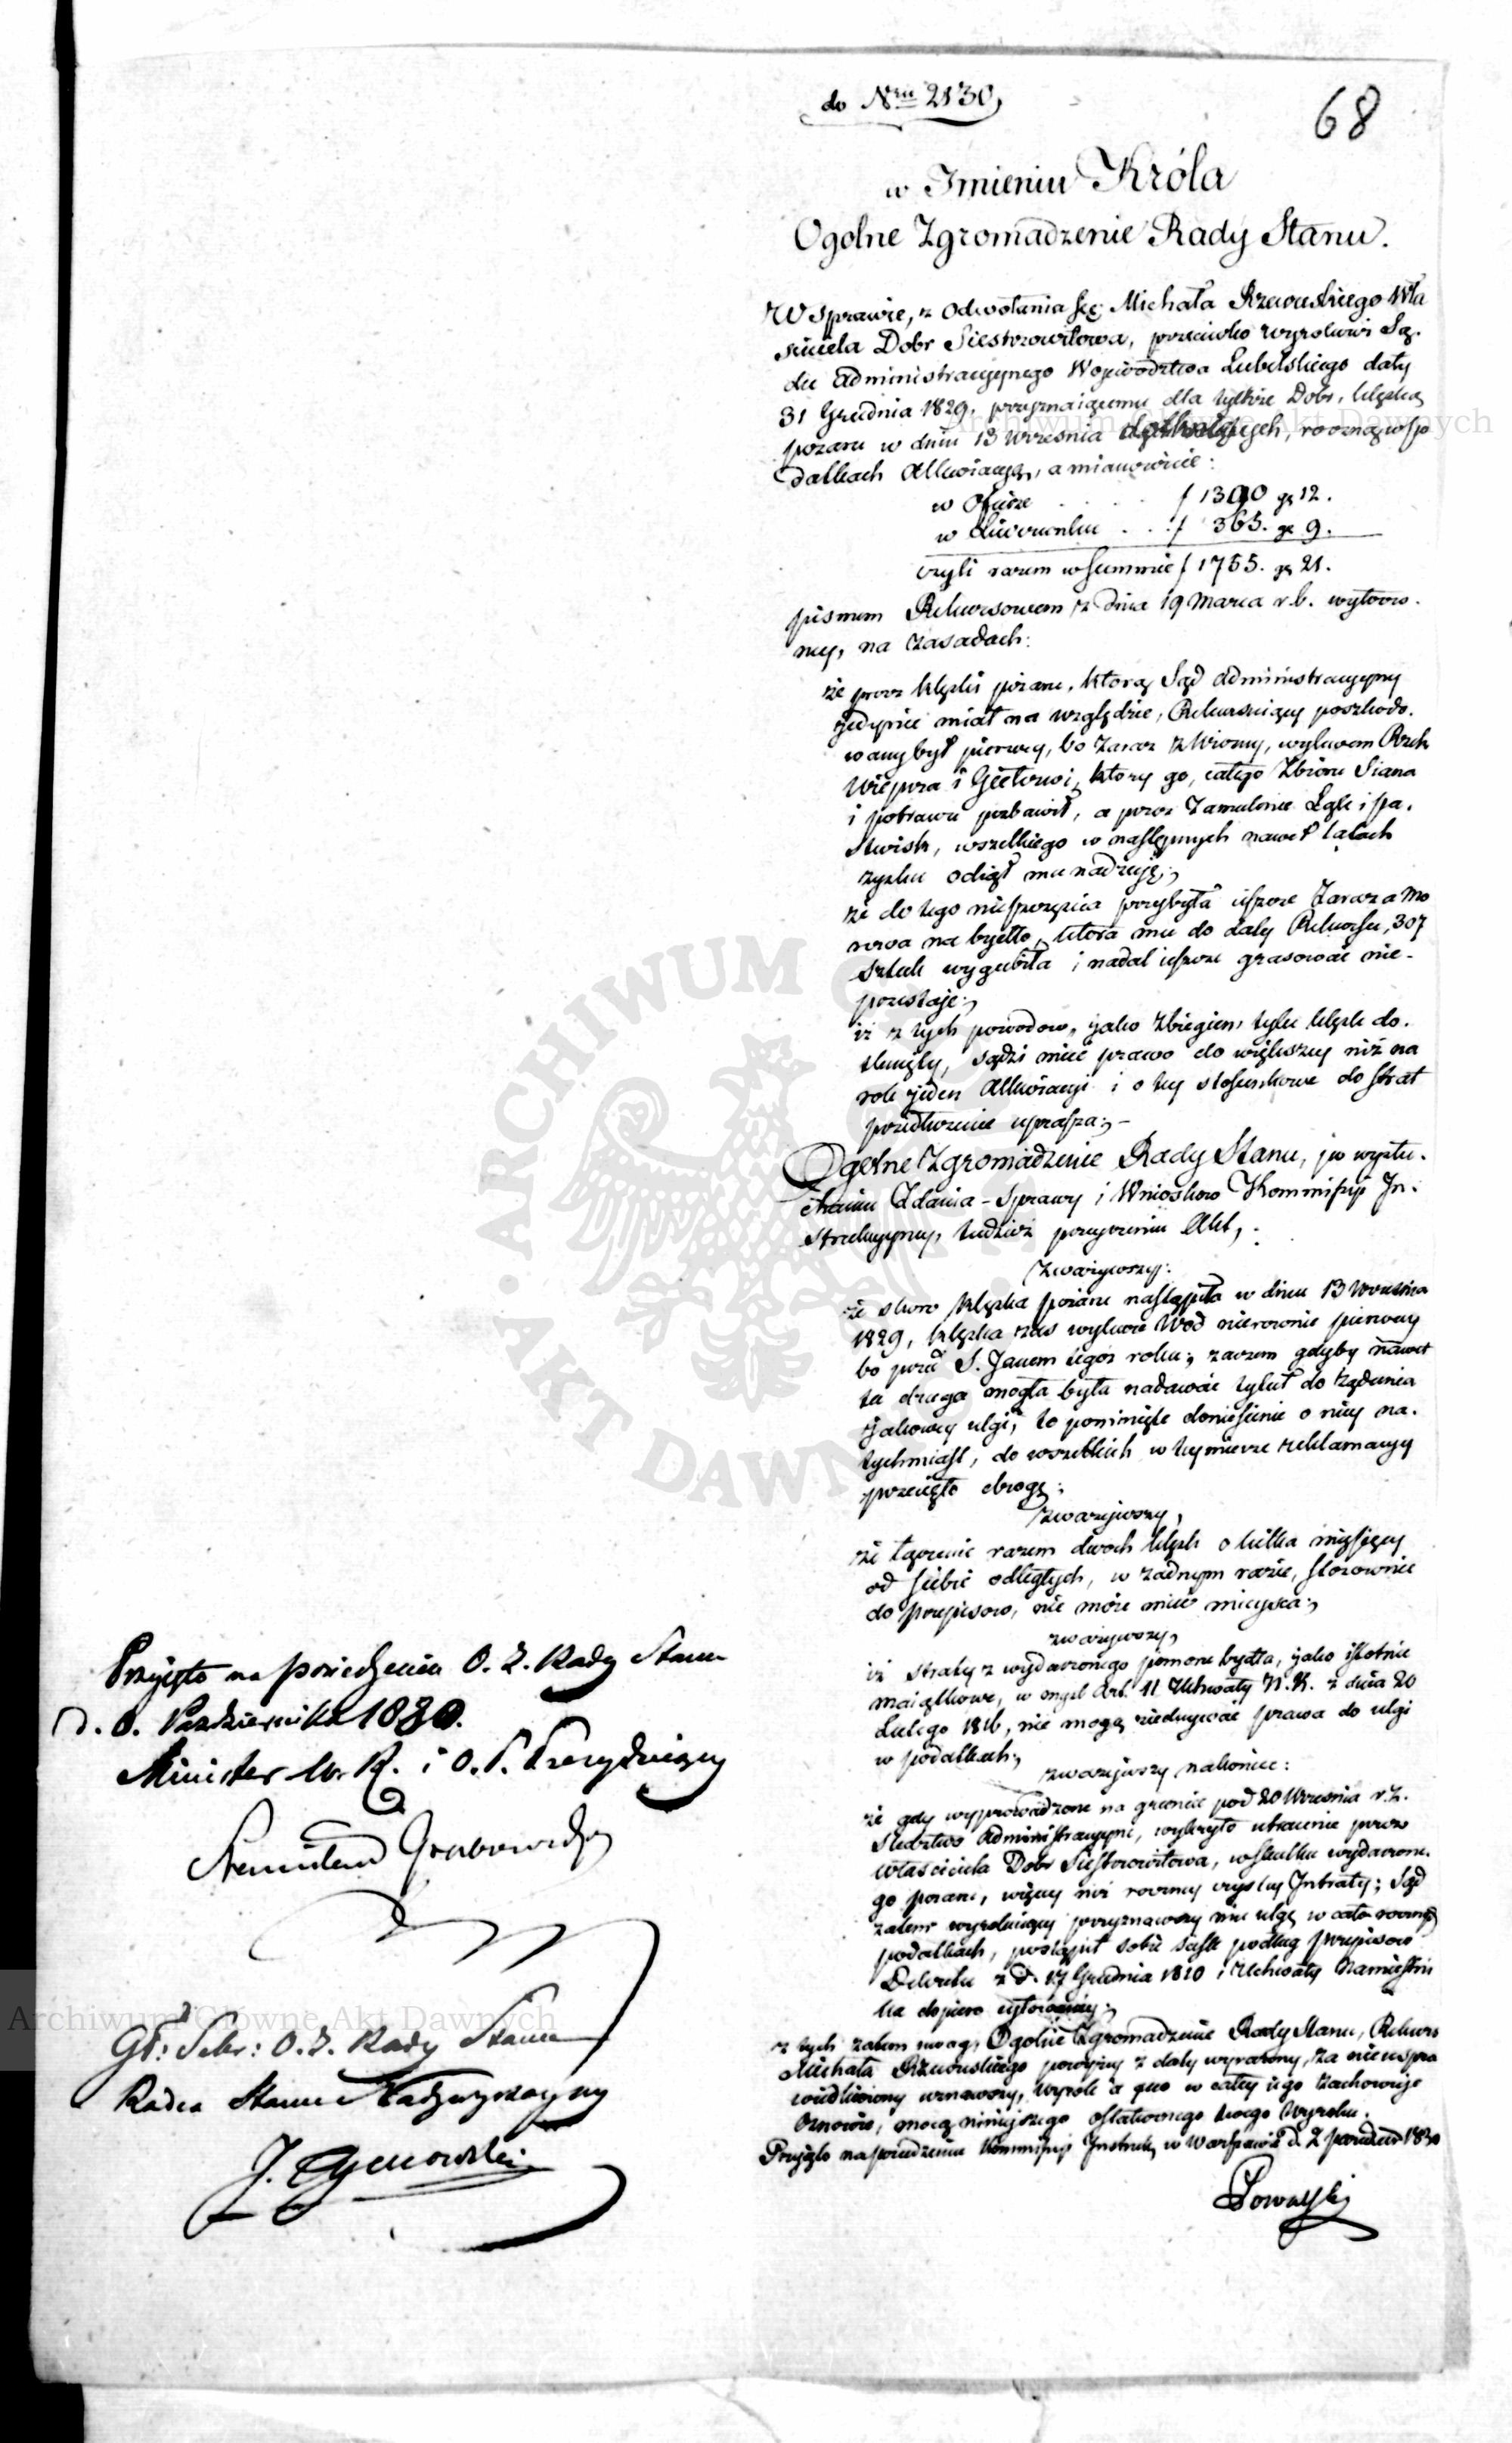 do Nru 2130,
68
w Imieniu Króla
Ogolne Zgromadzenie Rady Stanu.
W sprawie, z odwołania się Michała Rzewuskiego Wła
ściciela Dobr Siestrzewitowa, przeciwko wyrokowi Są-
du Administracyjnego Woiewodztwa Lubelskiego daty
31 Grudnia 1829, przyznaiącemu dla tychże Dobr, klęską
pożaru w dniu 13 Września dotkniętych, roczną w po
datkach allewiacyą, a mianowicie:
w Ofiarze . . . f 1390 gr 12.
w Liwerunku . . . f 365. gr 9.
czyli razem w summie f 1755. gr 21.
pismem Rekursowem z dnia 19 Marca r.b. wytoczo-
ney, na zasadach:
że przez klęską pożaru, którą Sąd Administracyjny
jedynie miał na względzie, Rekursuiący poszkodo-
wany był pierwey, bo zaraz z Wiosny, wylewem Rzek
Wieprza i Giełczwi, ktory go, całego Zbioru Siana
i potrawu pozbawił, a przez zamulenie Łąk i pa-
stwisk, wszelkiego w następnych nawet latach
zysku odiął mu nadzieję;
że do tego nieszczęścia przybyła ieszcze zaraza mo
rowa na bydło, która mu do daty Rekursu, 307
sztuk wygubiła i nadal ieszcze grasować nie-
przestaje;
iż z tych powodow, jako zbiegiem tylu klęsk do-
tknięty, sądzi mieć prawo do większey niż na
rok jeden allewiacyi i o tey stosunkowe do strat
przedłużenie uprasza; -
Ogolne Zgromadzenie Rady Stanu, po wysłu-
chaniu Zdania-Sprawy i Wniosków Kommissyi In-
strukcyjney, tudzież przeyrzeniu Akt,
Zważywszy:
że skoro klęska pożaru nastąpiła w dniu 13 Września
1829, klęska zas wylewu Wod nierownie pierwey
bo przed S. Janem tegoż roku; zaczem gdyby nawet
ta druga mogła była nadawać tytuł do żądania
jakowey ulgi, to pominięte doniesienie o niey na-
tychmiast, do wszelkich w tey mierze reklamacyy
przecięło drogę;
zważywszy,
że łączenie razem dwoch klęsk o kilka miesięcy
od siebie odległych, w żadnym razie, stosownie
do przepisow, nie może mieć mieysca;
zważywszy,
iż straty z wydarzonego pomoru bydła, jako istotnie
maiątkowe, w myśl Art. 11 Uchwały N. K. z dnia 20
Lutego 1816, nie mogą ziednywać prawa do ulgi
w podatkach;
zważywszy nakoniec:
że gdy wyprowadzone na gruncie pod 20 Września r.z.
śledztwo Administracyjne, wykryło utracenie przez
właściciela Dobr Siestrzewitowa, w skutku wydarzone-
go pożaru, więcey niż roczney czystey Intraty; Sąd
zatem wyrokuiący przyznawszy mu ulgę w cało roczney
podatkach, postąpił sobie ściśle podług przepisow
Dekretu z d. 17 Grudnia 1810 i Uchwały Namiestni
ka dopiero cytowaney;
z tych zatem uwag, Ogolne Zgromadzenie Rady Stanu, Rekurs
Michała Rzewuskiego powyżey z daty wyrażony, za nieuspra
wiedliwiony uznawszy, wyrok a quo w całey iego zachowuje
osnowie, mocą niniejszego ostatecznego swego Wyroku.
Przyięto na posiedzeniu Kommissyi Instruk. w Warszawie d. 2 1830
Przyięto na posiedzeniu O. Z. Rady Stanu
d. Października 1830.
Minister W. R. i O. P. Prezyduiący
Stanisław Grabowski
Gł: Sekr: O. Z. Rady Stanu
Radca Stanu Nadzwyczayny